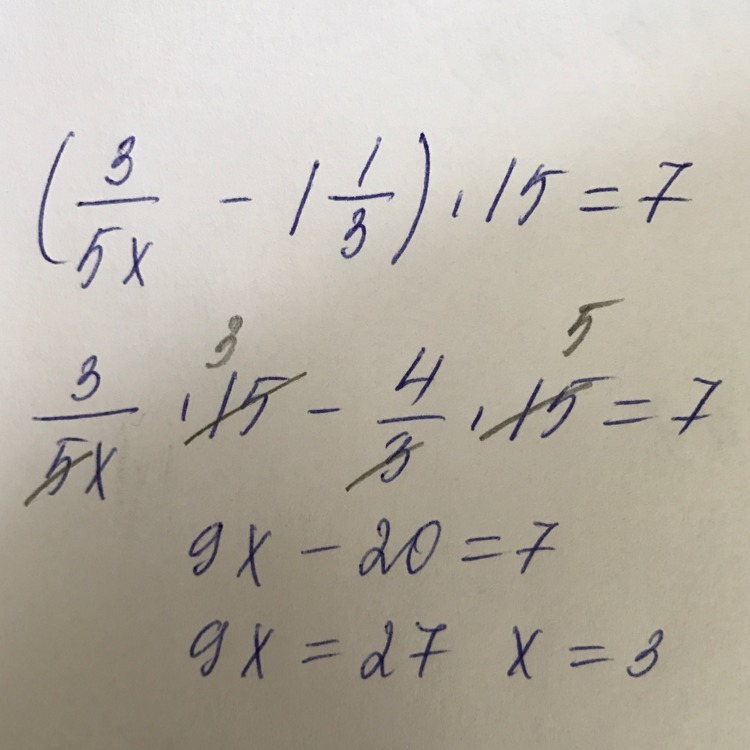 (3/5x - 1 1/3) · 15 = 7
3 5
3/5x · 15 - 4/3 · 15 = 7
9x - 20 = 7
9x = 27 x = 3